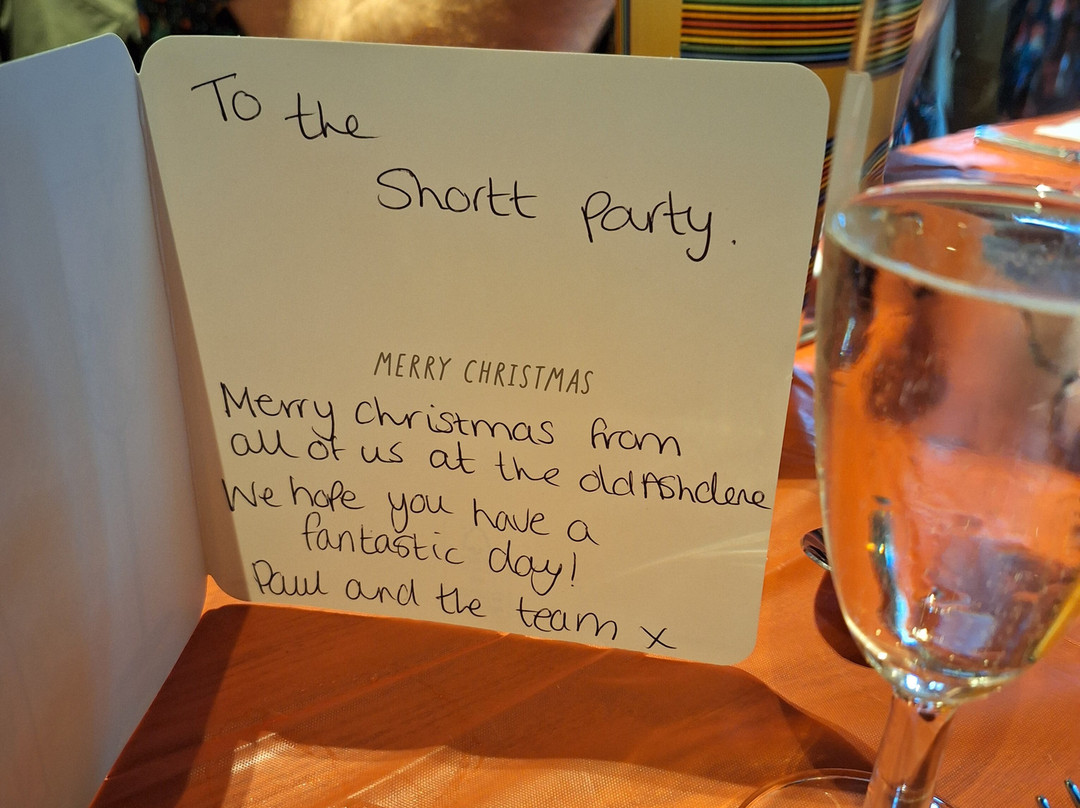 To the
Shortt party.
MERRY CHRISTMAS
Merry Christmas from
all of us at the old Ashdene
We hope you have a
fantastic day!
Paul and the team x